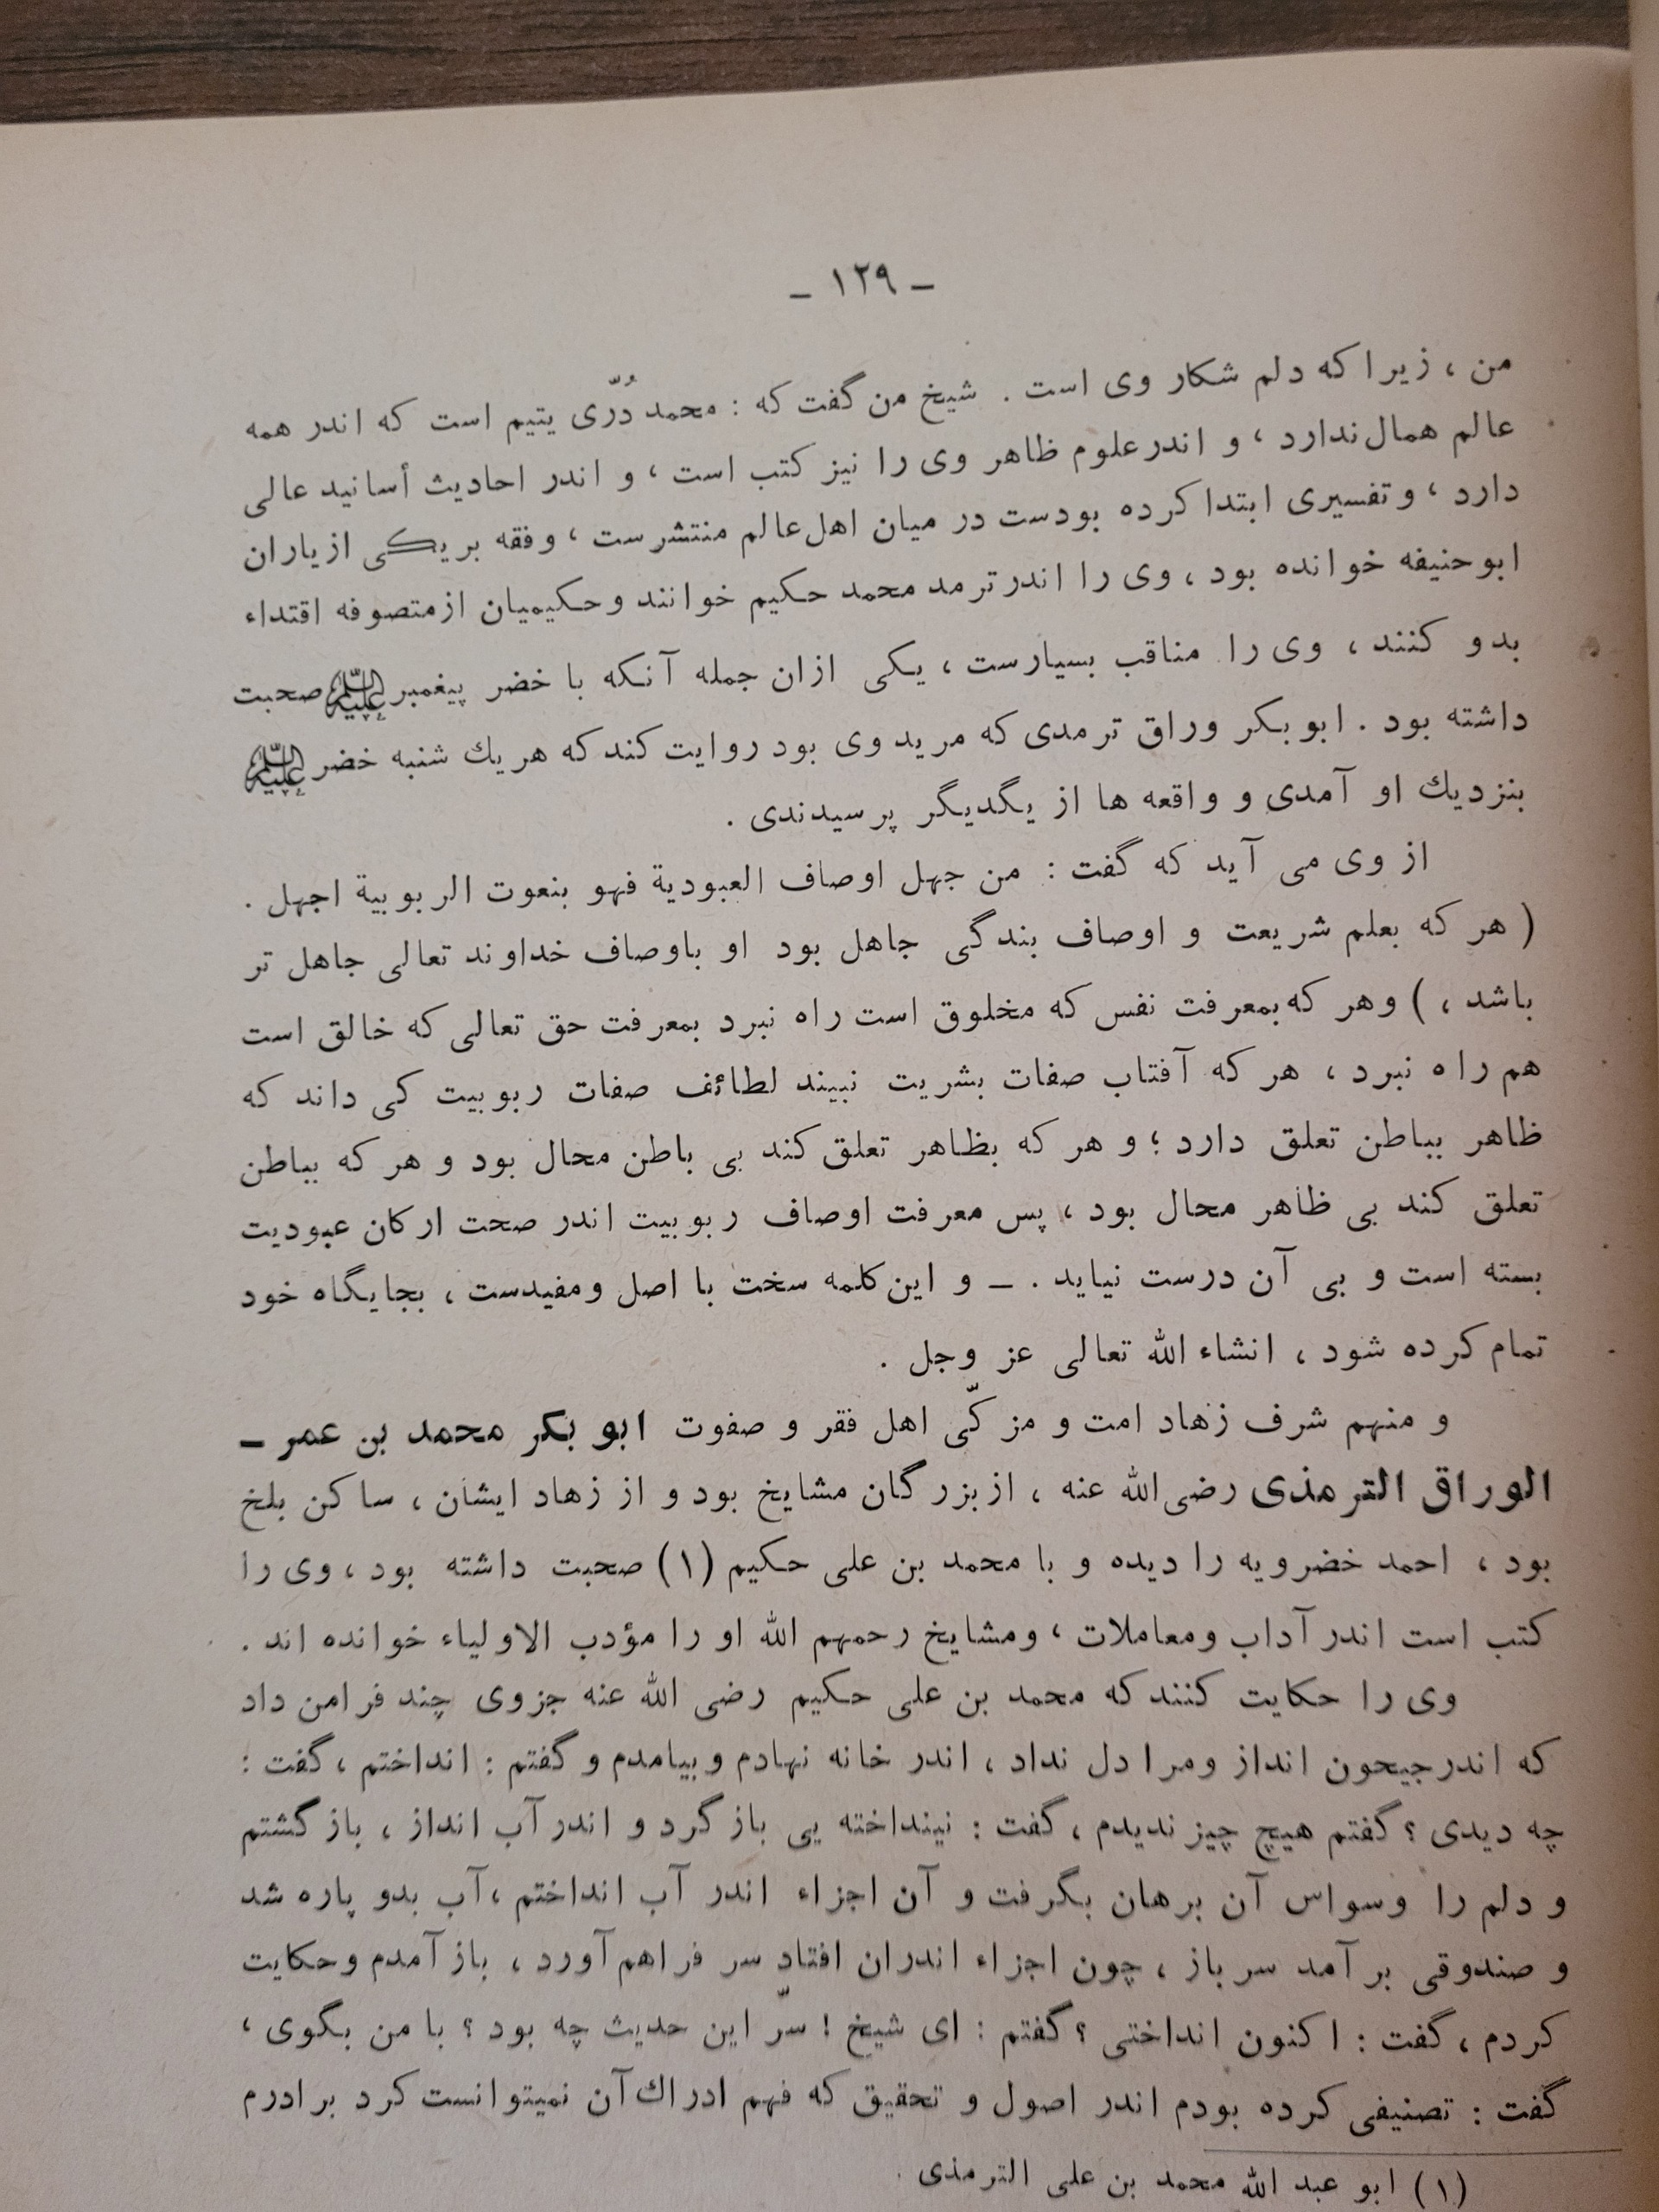 ـ ۱۲۹ ـ
من ، زیرا که دلم شکار وی است . شیخ من گفت که : محمد دُرّی یتیم است که اندر همه
عالم همال ندارد ، و اندر علوم ظاهر وی را نیز کتب است ، و اندر احادیث أسانید عالی
دارد ، و تفسیری ابتدا کرده بودست در میان اهل عالم منتشرست ، و فقه بر یکی از یاران
ابو حنیفه خوانده بود ، وی را اندر ترمد محمد حکیم خوانند و حکیمیان از متصوفه اقتداء
بدو کنند ، وی را مناقب بسیارست ، یکی ازان جمله آنکه با خضر پیغمبر علیه‌السلام صحبت
داشته بود . ابو بکر وراق ترمدی که مرید وی بود روایت کند که هر یك شنبه خضر علیه‌السلام
بنزدیك او آمدی و واقعه ها از یگدیگر پرسیدندی .
از وی می آید که گفت : من جهل اوصاف العبودیة فهو بنعوت الربوبیة اجهل .
( هر که بعلم شریعت و اوصاف بندگی جاهل بود او باوصاف خداوند تعالی جاهل تر
باشد ، ) و هر که بمعرفت نفس که مخلوق است راه نبرد بمعرفت حق تعالی که خالق است
هم راه نبرد ، هر که آفتاب صفات بشریت نبیند لطائف صفات ربوبیت کی داند که
ظاهر بباطن تعلق دارد ؛ و هر که بظاهر تعلق کند بی باطن محال بود و هر که بباطن
تعلق کند بی ظاهر محال بود ، پس معرفت اوصاف ربوبیت اندر صحت ارکان عبودیت
بسته است و بی آن درست نیاید . ـ و این کلمه سخت با اصل و مفیدست ، بجایگاه خود
تمام کرده شود ، انشاء الله تعالی عز وجل .
و منهم شرف زهاد امت و مزکّی اهل فقر و صفوت ابو بکر محمد بن عمر ـ
الوراق الترمذی رضی الله عنه ، از بزرگان مشایخ بود و از زهاد ایشان ، ساکن بلخ
بود ، احمد خضرویه را دیده و با محمد بن علی حکیم (۱) صحبت داشته بود ، وی را
کتب است اندر آداب و معاملات ، و مشایخ رحمهم الله او را مؤدب الاولیاء خوانده اند .
وی را حکایت کنند که محمد بن علی حکیم رضی الله عنه جزوی چند فرامن داد
که اندر جیحون انداز و مرا دل نداد ، اندر خانه نهادم و بیامدم و گفتم : انداختم ، گفت :
چه دیدی ؟ گفتم هیچ چیز ندیدم ، گفت : نینداخته یی باز گرد و اندر آب انداز ، باز گشتم
و دلم را وسواس آن برهان بگرفت و آن اجزاء اندر آب انداختم ، آب بدو پاره شد
و صندوقی بر آمد سر باز ، چون اجزاء اندران افتاد سر فراهم آورد ، باز آمدم و حکایت
کردم ، گفت : اکنون انداختی ؟ گفتم : ای شیخ ! سرّ این حدیث چه بود ؟ با من بگوی ،
گفت : تصنیفی کرده بودم اندر اصول و تحقیق که فهم ادراك آن نمیتوانست کرد برادرم
(۱) ابو عبد الله محمد بن علی الترمذی .